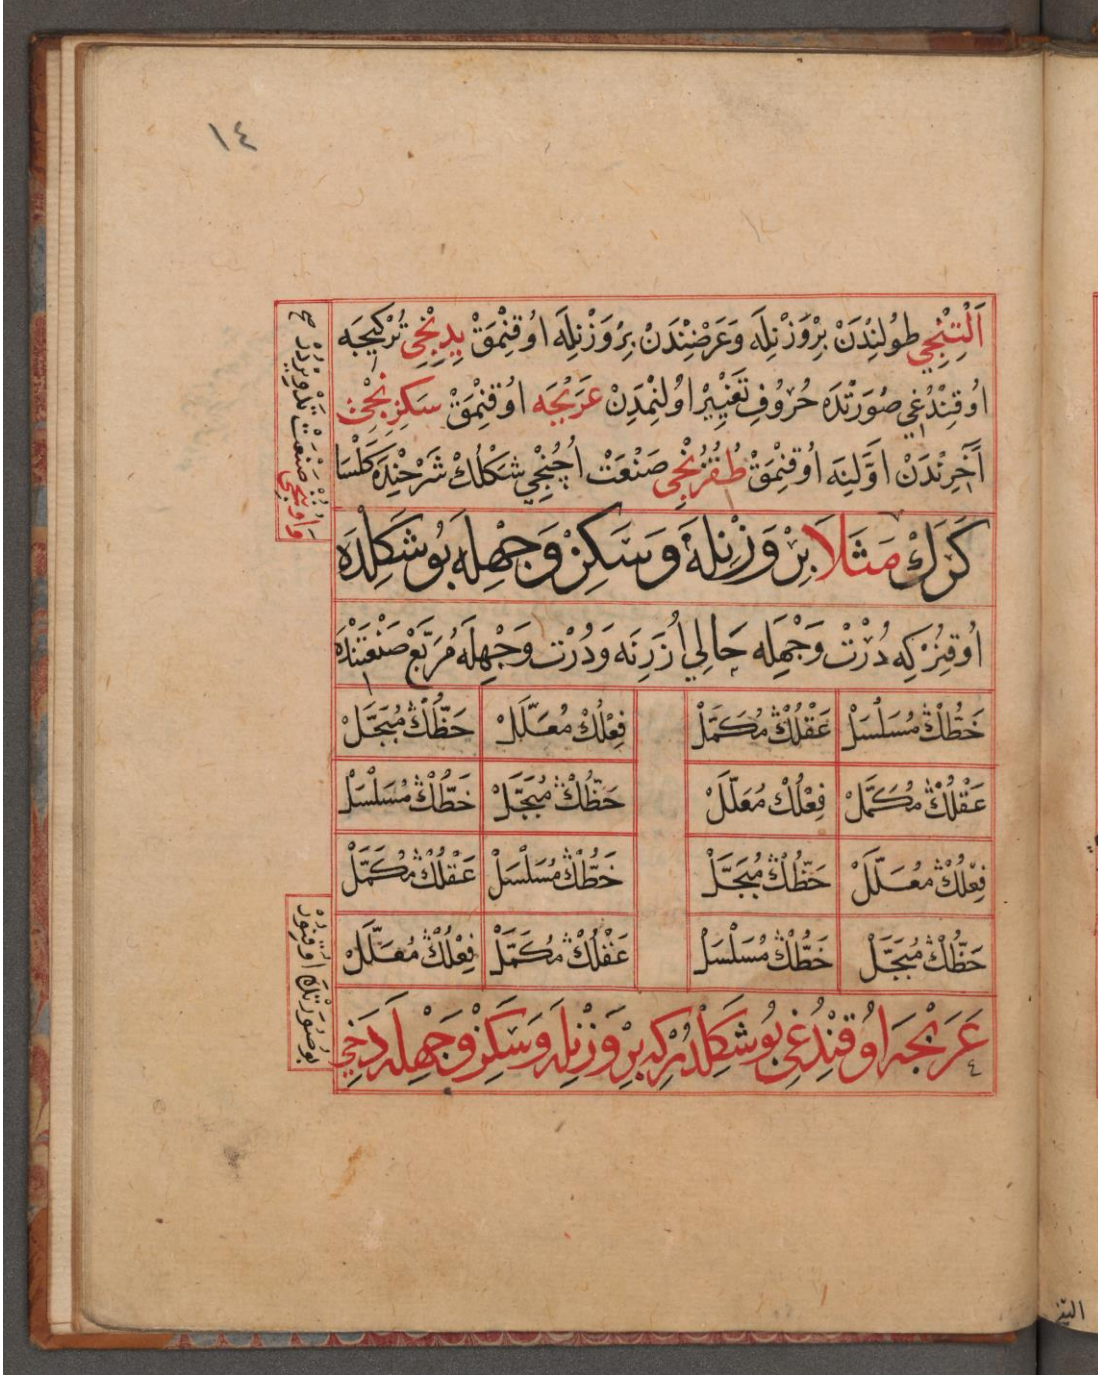 ١٤
اَلْتِنْجِي طُولِنْدَنْ بِرْوَزْنِلَه وَعَرْضِنْدَنْ بِرْوَزْنِلَه اوُقِنْمَقْ يِدِنْجِي تُرْكِيجَه
اوُقِنْدُغِي صُورَتْدَه حُرُوفِ تَغْيِيرْ اوُلِنْمَدِنْ عَرَبْجَه اوُقِنْمَقْ سَكِزِنْجِي
آخِرِنْدَنْ اوَّلِنَه اوُقِنْمَقْ طُقُزُنْجِي صَنْعَتْ اُچُنْجِي شَكْلُكْ شَرْحِنِدَه كَلْسَا
كَرَكْ مَثَلاَ بِرْ وَزْنِلَه وَسَكِزْ وَجْهِلَه بُوشَكِلْدَه
اوُقِنُرْ كِه دُرْتْ وَجْهِلَه حَالِي اُزَرِنَه وَدُرْتْ وَجْهِلَه مُرَبَّعْ صَنْعَتِنْدَه
خَطُّكْ مُسَلْسَلْ عَقْلُكْ مُكَمَّلْ فِعْلُكْ مُعَلَّلْ حَظُّكْ مُبَجَّلْ
عَقْلُكْ مُكَمَّلْ فِعْلُكْ مُعَلَّلْ حَظُّكْ مُبَجَّلْ خَطُّكْ مُسَلْسَلْ
فِعْلُكْ مُعَلَّلْ حَظُّكْ مُبَجَّلْ خَطُّكْ مُسَلْسَلْ عَقْلُكْ مُكَمَّلْ
حَظُّكْ مُبَجَّلْ خَطُّكْ مُسَلْسَلْ عَقْلُكْ مُكَمَّلْ فِعْلُكْ مُعَلَّلْ
عَرَبْجَه اوُقِنْدُغِي بُوشَكِلْدُرْكِه بِرْ وَزْنِلَه وَسَكِزْ وَجْهِلَه دَخِي
٤
اوُنُنْجِي صَنْعَتْ
بُوصُورَتْدَه اوُقِنُورْ